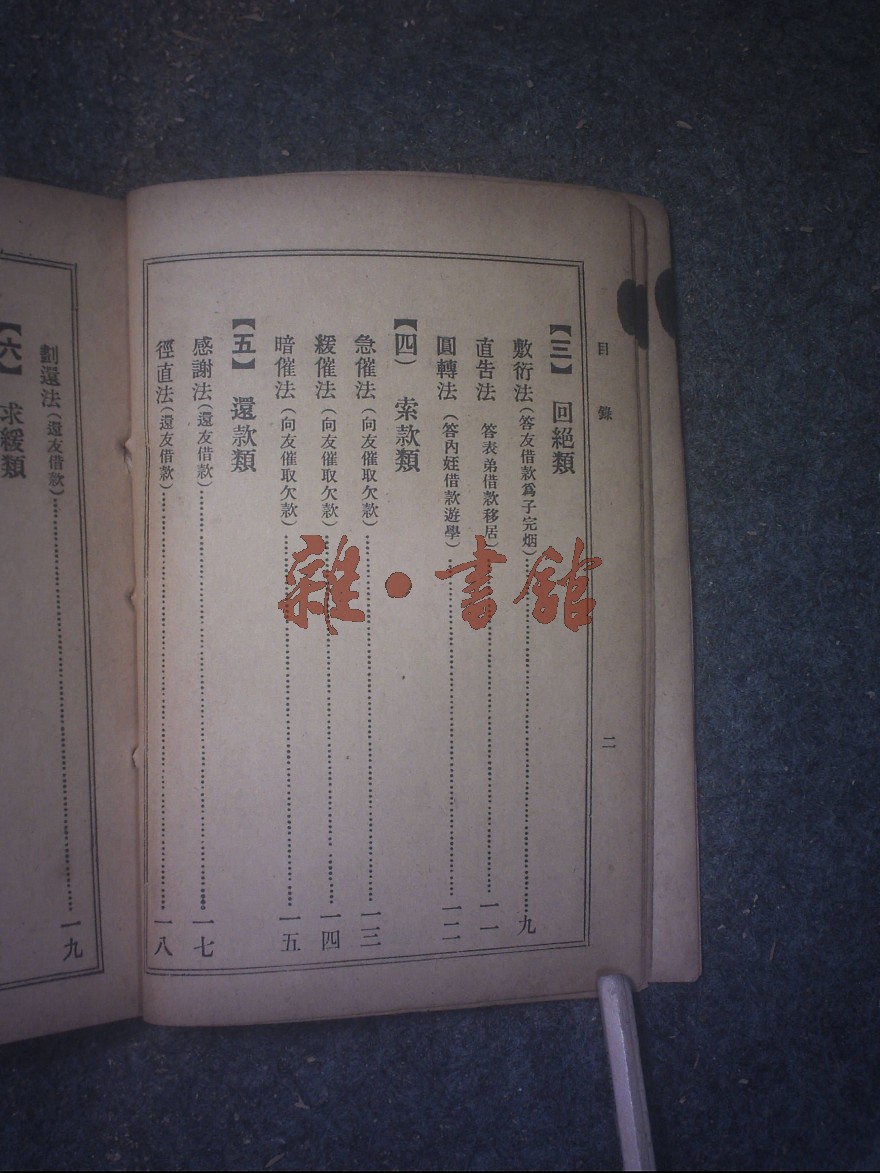 目錄
二
【三】 回絕類
敷衍法(答友借款爲子完烟)……九
直吿法 (答表弟借款移居)……一一
圓轉法 (答內姪借款遊學)……一二
【四】 索款類
急催法 (向友催取欠款)……一三
緩催法 (向友催取欠款)……一四
暗催法 (向友催取欠款)……一五
【五】 還款類
感謝法(還友借款)……一七
徑直法(還友借款)……一八
劃還法(還友借款)……一九
【六】 求緩類
雜·書館